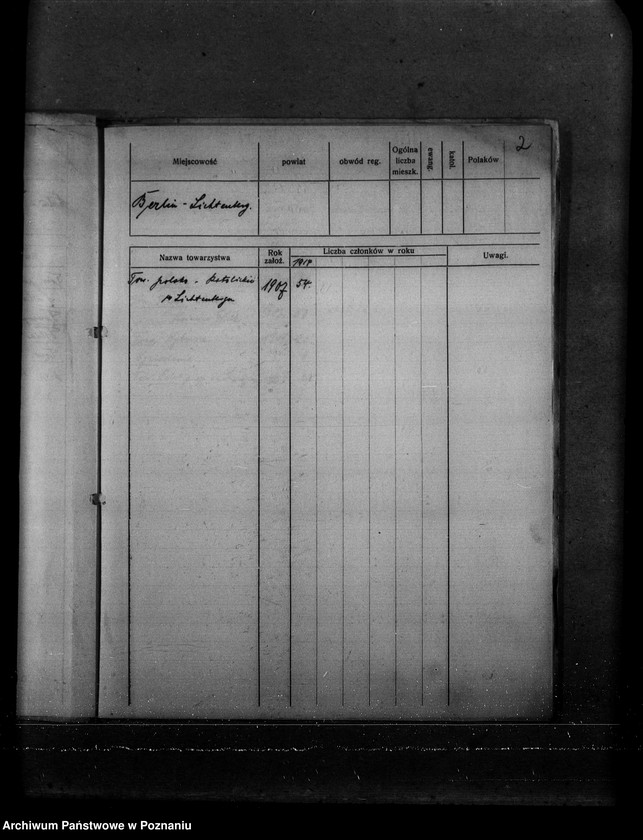 2
Miejscowość powiat obwód reg. Ogólna liczba mieszk. ewang. katol. Polaków
Berlin - Lichtenberg.
Nazwa towarzystwa Rok założ. Liczba członków w roku Uwagi.
Tow. polsko - katolickie 1907 54
w Lichtenbergu
Archiwum Państwowe w Poznaniu